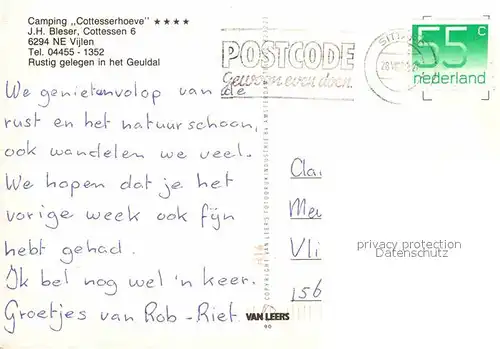 Camping „Cottesserhoeve" ★★★★
J.H. Bleser, Cottessen 6
6294 NE Vijlen
Tel. 04455 - 1352
Rustig gelegen in het Geuldal
POSTCODE
Gewoon even doen.
SITTARD
55 c
nederland
We genieten volop van de
rust en het natuurschoon,
ook wandelen we veel.
We hopen dat je het
vorige week ook fijn
hebt gehad.
Ik bel nog wel 'n keer.
Groetjes van Rob - Riet.
Cla
Me
Vli
156
privacy protection
Datenschutz
COPYRIGHT VAN LEERS FOTODRUKINDUSTRIE B.V. AMSTERDAM
VAN LEERS